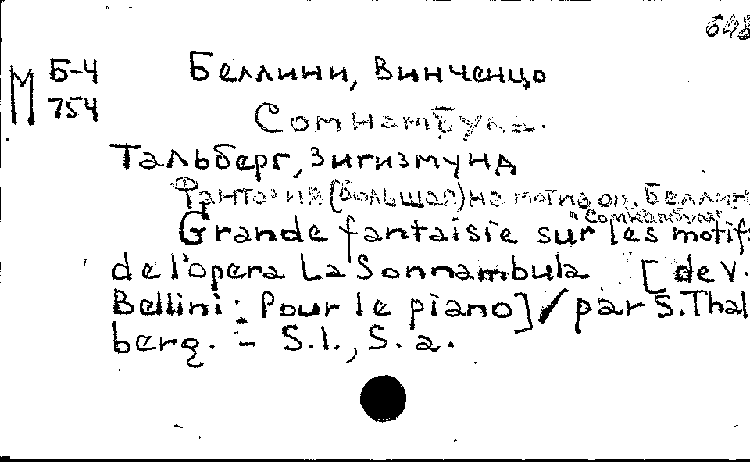 648
М Б-4 Беллини, Винченцо
754
Сомнамбула.
Тальберг, Зигизмунд
Фантазия (большая) на мотив оп. Беллин
"Сомнамбула"
Grande fantaisie sur les motifs
de l'opera La Sonnambula [de V.
Bellini : Pour le piano] / par S. Thal
berg. - S.l., S.a.